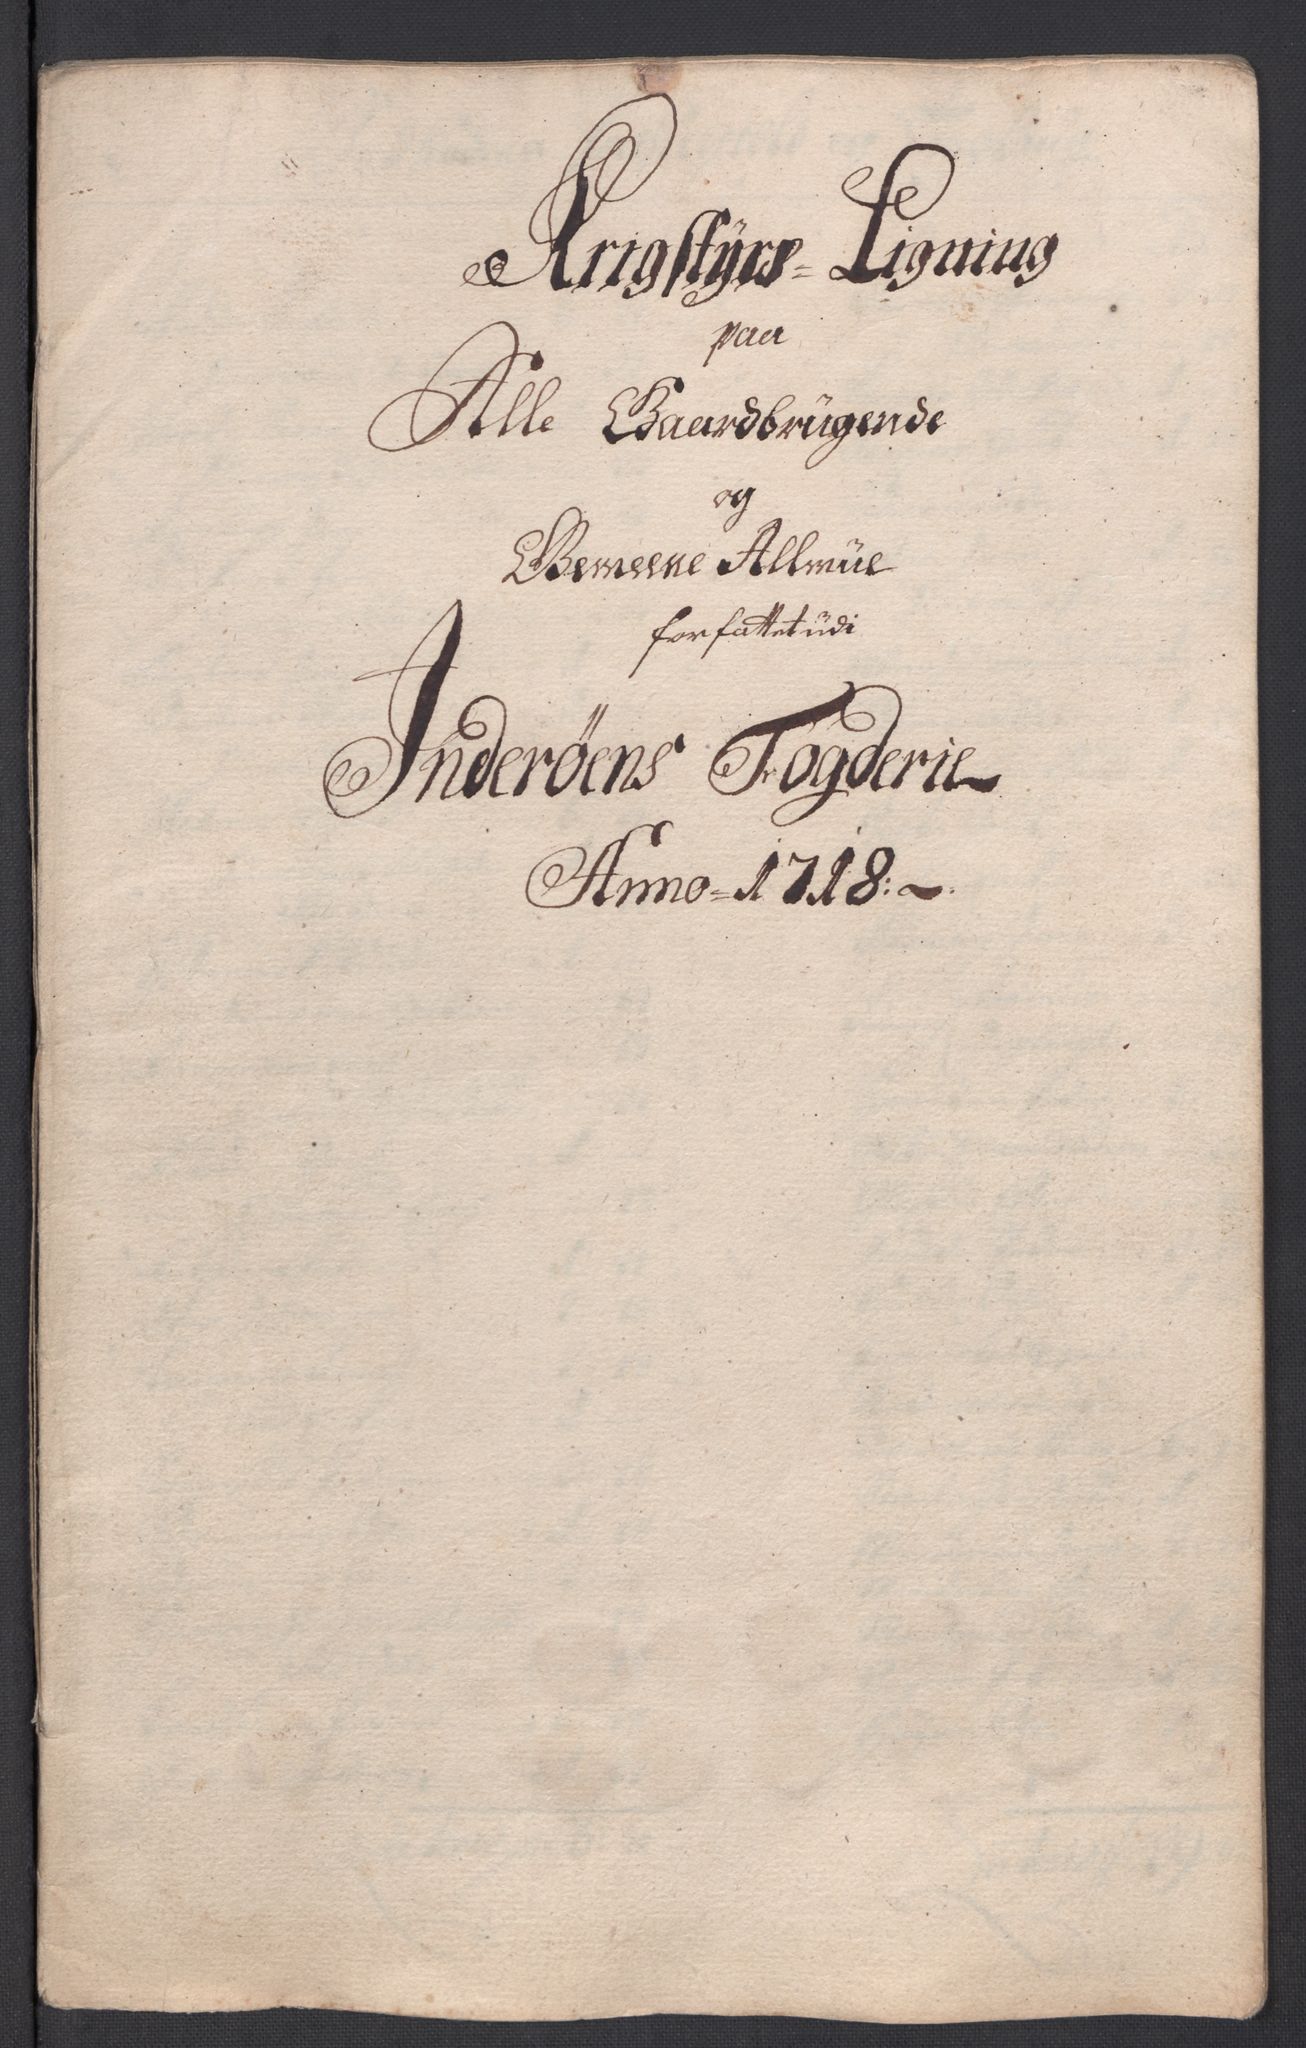 Krigstÿrs = Ligning
paa
Alle Gaardbrügende
og
Gemeene Allmüe
forfattet üdi
Inderöens Fogderie
Anno = 1718: